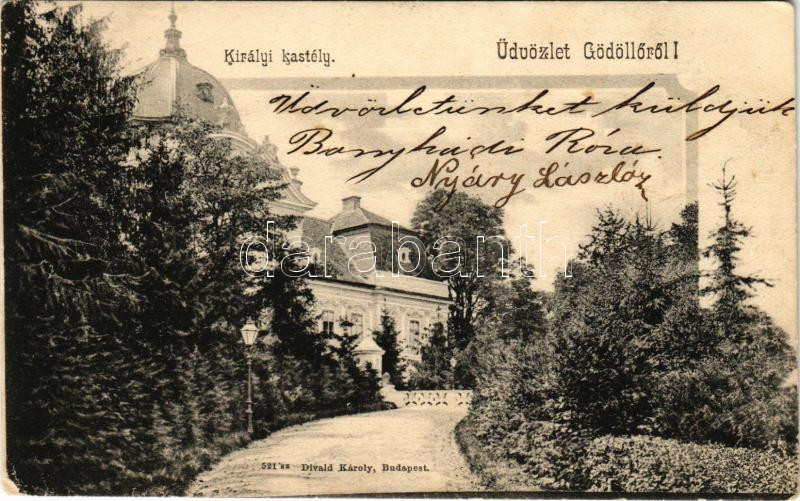 Királyi kastély.
Üdvözlet Gödöllőről!
Üdvözletünket küldjük
Bonyhádi Róza
Nyáry László
darabanth.com
521 sz Divald Károly, Budapest.